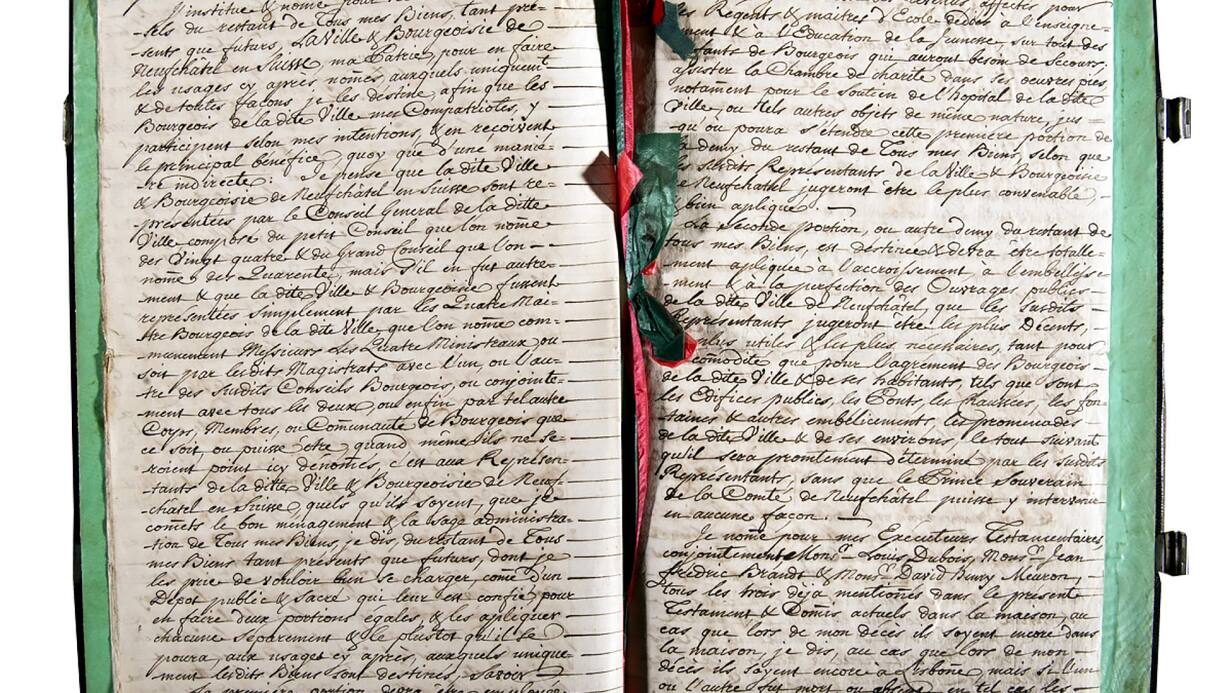 J'institue & nome pour
-tiels du restant de Tous mes Biens, tant pré-
sents que futurs, La Ville & Bourgeoisie de
Neufchâtel en Suisse, ma Patrie, pour en faire
les usages cy après, només, auxquels uniquemt
& de toutes façons je les destine, afin que les
Bourgeois de la dite Ville mes Compatriotes, y
participent selon mes intentions, & en reçoivent
le principal bénéfice, quoy que d'une manié-
-re indirecte: Je pense que la dite Ville
& Bourgeoisie de Neufchâtel en Suisse sont re-
présentées par le Conseil General de la ditte
Ville composé du petit Conseil que l'on nome
des Vingt quatre & du Grand Conseil que l'on
nome des Quarente, mais s'il en fut autre-
ment & que la dite Ville & Bourgeoisie fussent
representées simplement par les Quatre Mai-
tre Bourgeois de la dite Ville, que l'on nome com-
munement Messieurs les Quatre Ministraux, ou
soit par les dits Magistrats avec l'un, ou l'au-
tre des surdits Conseils Bourgeois, ou conjointe-
ment avec tous les deux, ou enfin par tel autre
Corps, Membres, ou Comunauté de Bourgeois que
ce soit, ou puisse être, quand même ils ne se-
roient point icy denomés, c'est aux Représen-
tants de la ditte Ville & Bourgeoisie de Neuf-
châtel en Suisse, quels qu'ils soyent, que je
comets le bon ménagement & la sage administra-
tion de Tous mes Biens, je dis, du restant de Tous
mes Biens tant présents que futurs, dont je
les prie de vouloir bien se charger, come d'un
Dépot public & Sacré qui leur est confié pour
en faire deux portions égales, & les apliquer
chacune séparement & le plustot qu'il se
poura, aux usages cy après, auxquels unique
ment les dits Biens sont destinés, savoir
La première portion devra être employée
Regents & maitres d'Ecole dediés à l'enseigne-
ment & à l'Education de la Jeunesse, sur tout des
fants de Bourgeois qui auront besoin de secours:
assister la Chambre de charité dans ses oeuvres pies,
notament pour le soutien de l'hopital de la dite
Ville, ou tels autres objets de même nature, jus-
qu'où poura s'étendre cette première portion de
la demy du restant de Tous mes Biens, selon que
les surdits Representants de la Ville & Bourgeoisie
de Neufchatel jugeront être le plus convenable,
& bien apliqué.
La Seconde portion, ou autre demy du restant de
tous mes Biens, est destinée & devra être totalle-
ment apliquée à l'accroissement, à l'embellisse-
ment & à la perfection des Ouvrages publics
de la dite Ville de Neufchâtel, que les surdits
Représentants jugeront etre les plus Décents,
plus utiles & les plus nécessaires, tant pour
comodité que pour l'agrément des Bourgeois
de la dite Ville & de ses habitants, tels que sont
les Edifices publics, les Ponts, les chaussées, les fon-
taines & autres embelicements, les promenades
de la dite Ville & de ses environs, le tout suivant
qu'il sera promtement déterminé par les surdits
Représentants, sans que le Prince Souverain
de la Comté de Neufchâtel puisse y intervenir
en aucune façon.
Je nome pour mes Executeurs Testamentaires,
conjointement Monsr. Louis Dubois, Monsr. Jean
Fredric Brandt & Monsr. David Bury Meuron,
tous les trois déjà mentionés dans le présent
Testament & Comis actuels dans la maison, au
cas que lors de mon décès ils soyent encore dans
la maison, je dis, au cas que lors de mon
décès ils soyent encore à Lisbone, mais si l'un
ou l'autre fut mort ou absent, en tel cas les